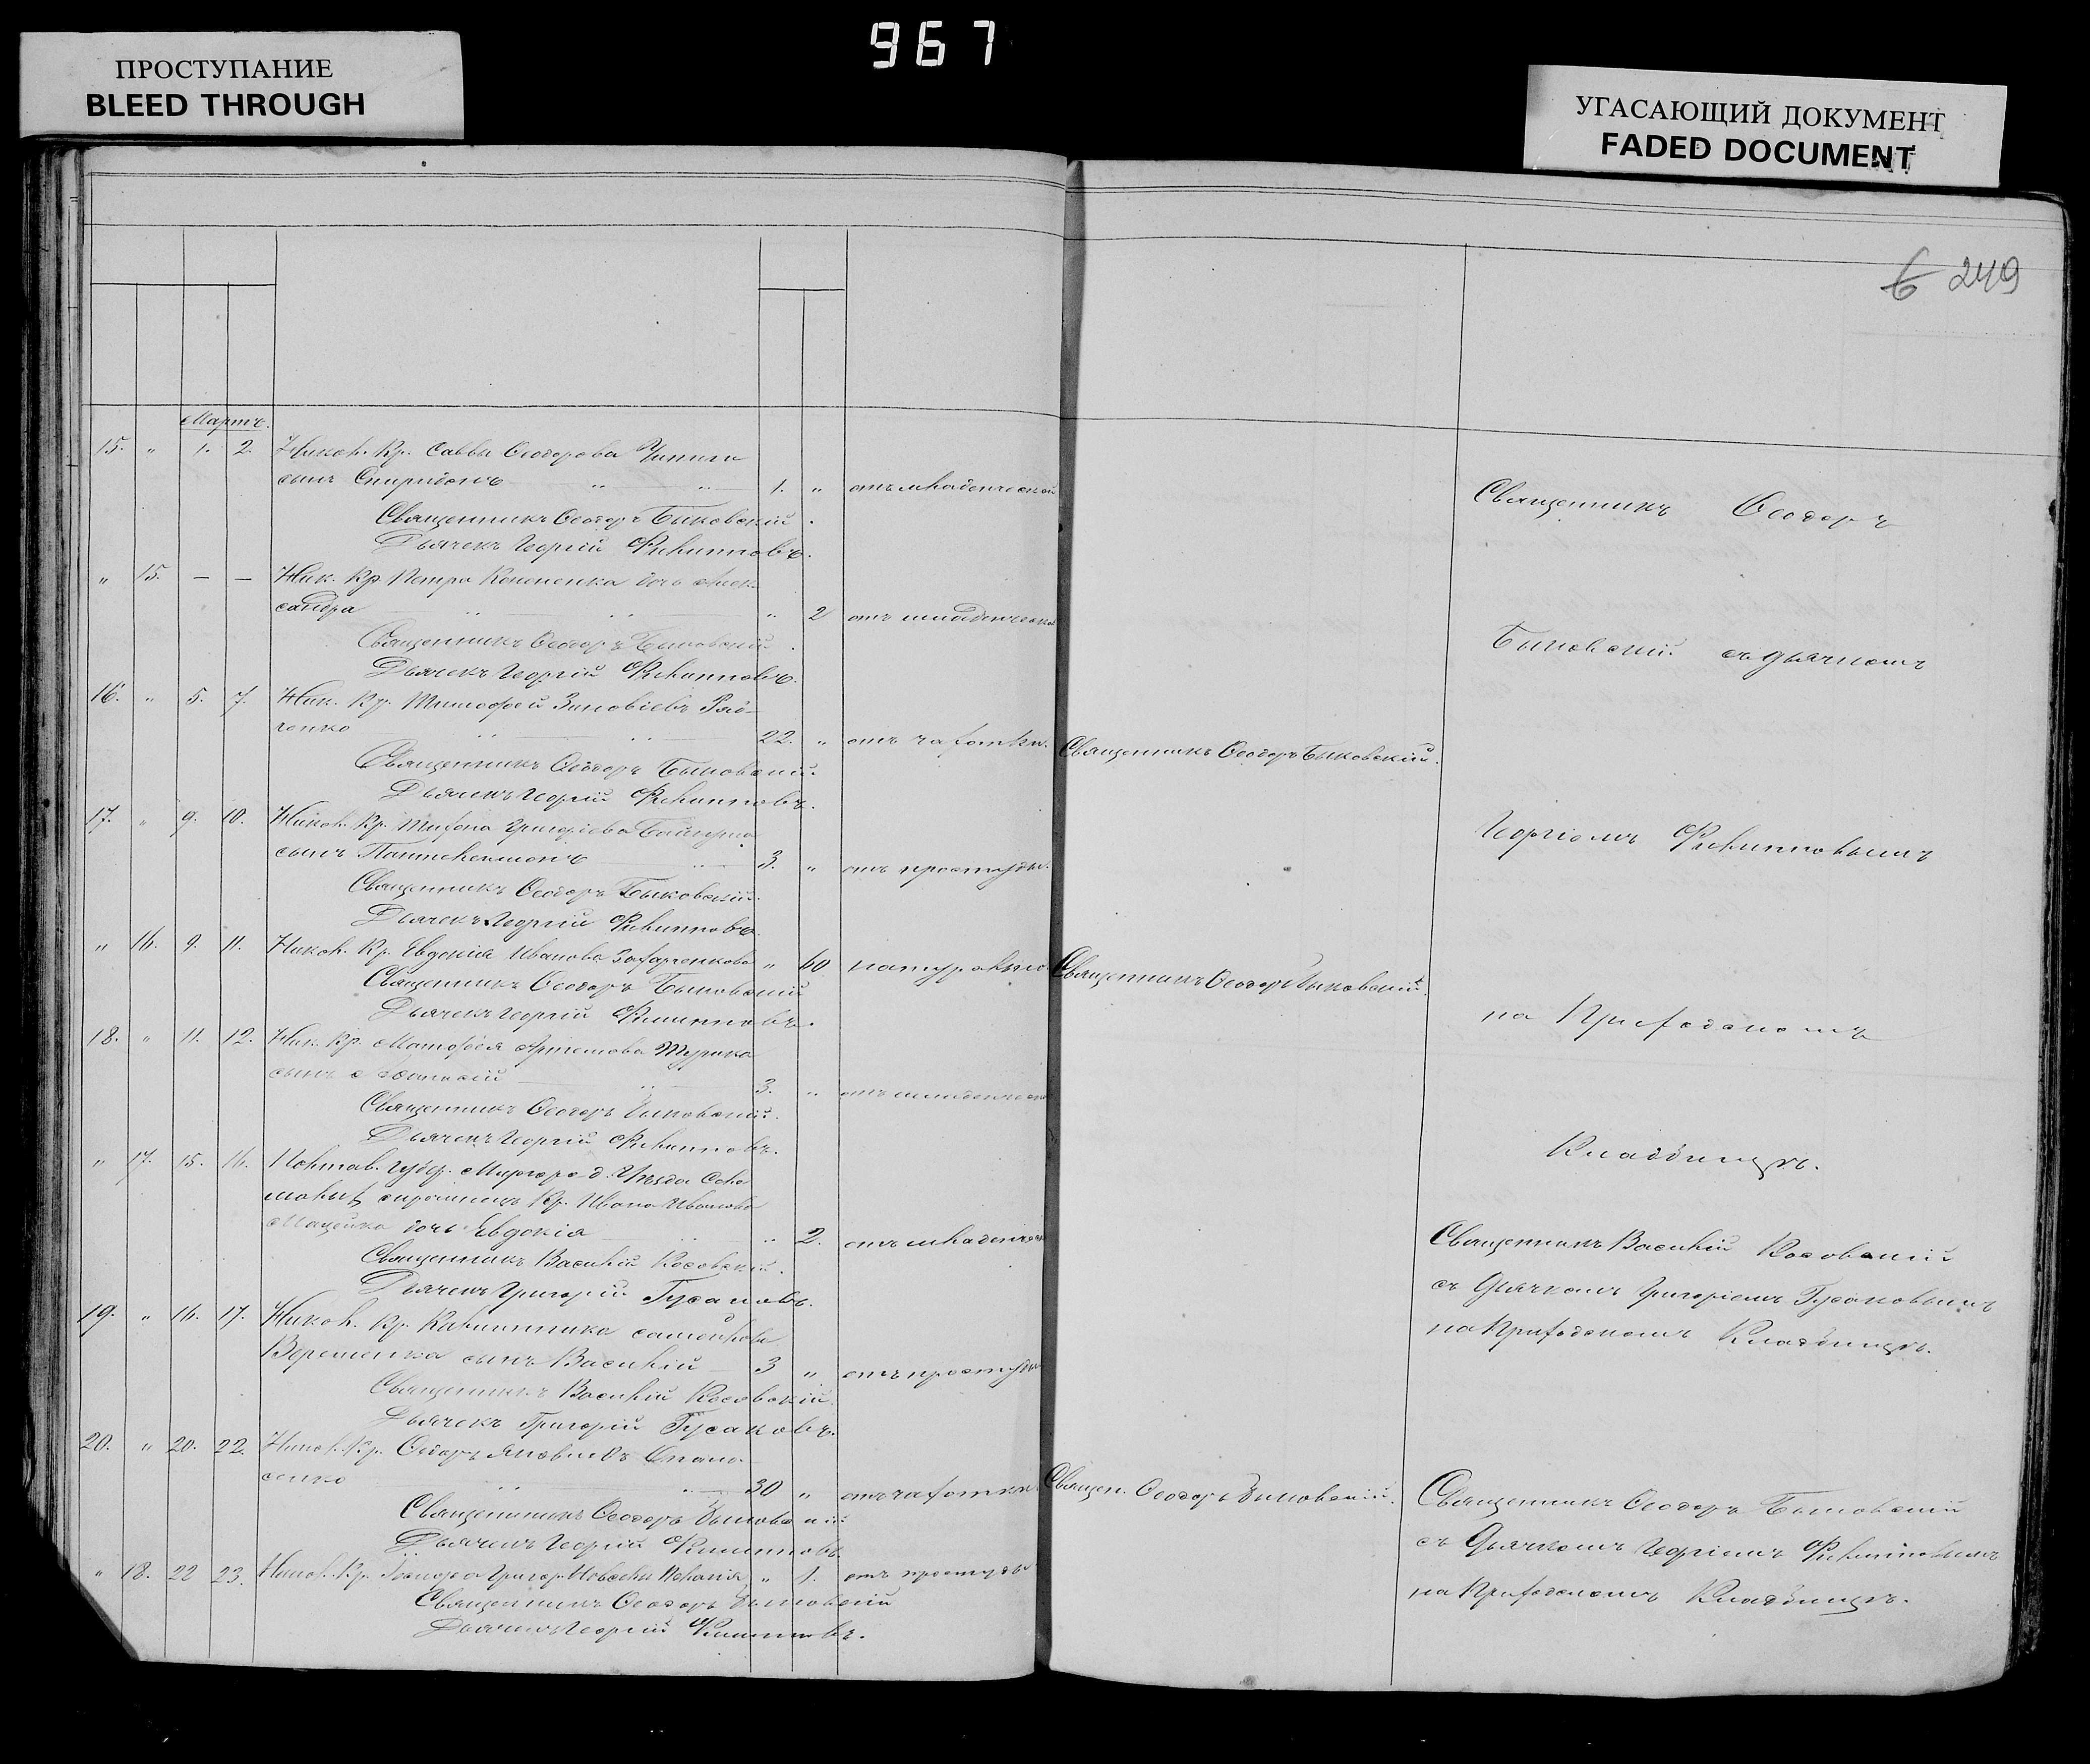 967
ПРОСТУПАНИЕ
BLEED THROUGH
УГАСАЮЩИЙ ДОКУМЕНТ
FADED DOCUMENT
6 249
Мартъ.
15. " 1. 2. Никол. Кр. Саввы Ѳеодорова
сынъ Спиридонъ " " 1. " отъ младенческой
Священникъ Ѳеодоръ Быковскій.
Дьячекъ Георгій Филипповъ.
" 15. — — Ник. Кр. Петра Кононенка дочь Алек-
сандра " " " 2 отъ младенческой
Священникъ Ѳеодоръ Быковскій.
Дьячекъ Георгій Филипповъ.
16. " 5. 7. Ник. Кр. Тимофей Зиновіевъ Рад-
ченко " " 22. " отъ чахотки. Священникъ Ѳеодоръ Быковскій.
Священникъ Ѳеодоръ Быковскій.
Дьячекъ Георгій Филипповъ.
17. " 9. 10. Никол. Кр. Григоріева
сынъ Пантелеимонъ " 3. " отъ простуды.
Священникъ Ѳеодоръ Быковскій.
Дьячекъ Георгій Филипповъ.
" 16. 9. 11. Никол. Кр. Евдокія Иванова Захарченкова " 60 натурально Священникъ Ѳеодоръ Быковскій.
Священникъ Ѳеодоръ Быковскій
Дьячекъ Георгій Филипповъ.
18. " 11. 12. Ник. Кр. Матѳея Артемова
сынъ " 3. " отъ младенческой
Священникъ Ѳеодоръ Быковскій.
Дьячекъ Георгій Филипповъ.
" 17. 15. 16. Полтав. Губер. Миргород. Уѣзда
Кр. Ивана Иванова
дочь Евдокія " 2. отъ младенческ
Священникъ Василій Косовскій.
Дьячекъ Григорій Гусаковъ.
19. " 16. 17. Никол. Кр. Самойлова
сынъ Василій 3 " отъ простуды
Священникъ Василій Косовскій.
Дьячекъ Григорій Гусаковъ.
20. " 20. 22. Никол. Кр. Ѳедоръ Яковлевъ
сенко " " 30 " отъ чахотки Священ. Ѳеодоръ Быковскій.
Священникъ Ѳеодоръ Быковскій
Дьячекъ Георгій Филипповъ.
" 18. 22 23. Никол. Кр. Григор. " 1. отъ простуды
Священникъ Ѳеодоръ Быковскій
Дьячекъ Георгій Филипповъ.
Священникъ Ѳеодоръ
Быковскій съ дьячкомъ
Георгіемъ Филипповымъ
на Приходскомъ
Кладбищѣ.
Священникъ Василій Косовскій
съ Дьячкомъ Григоріемъ Гусаковымъ
на Приходскомъ Кладбищѣ.
Священникъ Ѳеодоръ Быковскій
съ Дьячкомъ Георгіемъ Филипповымъ
на Приходскомъ Кладбищѣ.